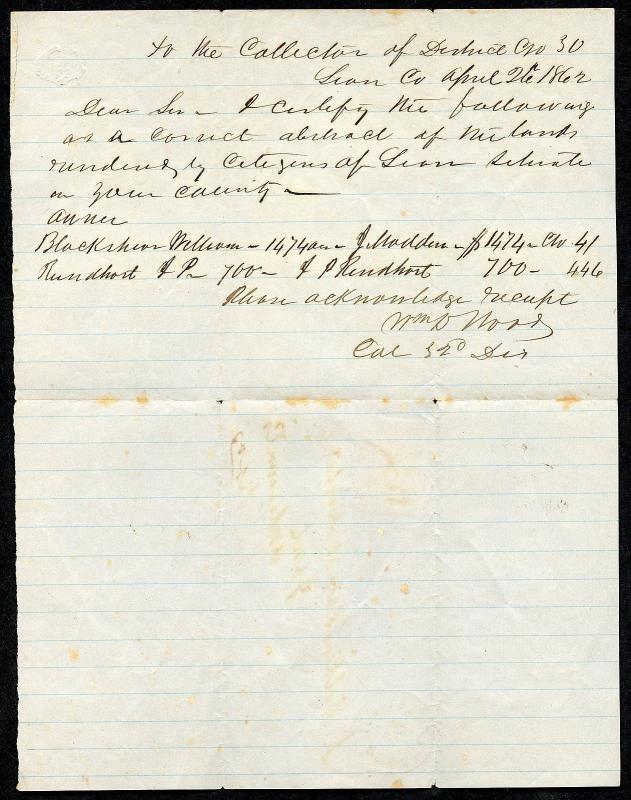 To the Collector of District No 30
Leon Co April 26 1862
Dear Sir - I certify the following
as a correct abstract of the lands
rendered by Citizens of Leon Situate
in your County -
owner
Blackshear William - 1474 acs - J Madden - $1474 - No 41
Rundhart J P - 700 - J P Rundhart 700 - 446
Please acknowledge receipt
Wm D Wood
Col 32D Dis